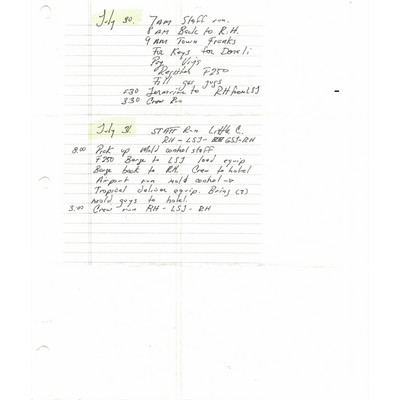 July 30. 7AM Staff run.
8 AM Back to R.H.
9 AM Town Franks
For Keys for
Pay
Register F250
Fill gas jugs
to RH from LSJ
3:30 Crew Run
July 31. STAFF Run Little C.
RH - LSJ - GSJ - RH
8:00 Pick up Mold control staff
F250 Barge to LSJ load equip
Barge back to RH. Crew to hotel
Airport run mold control
Tropical equip. Bring (2)
mold guys to hotel.
3:00 Crew run RH - LSJ - RH